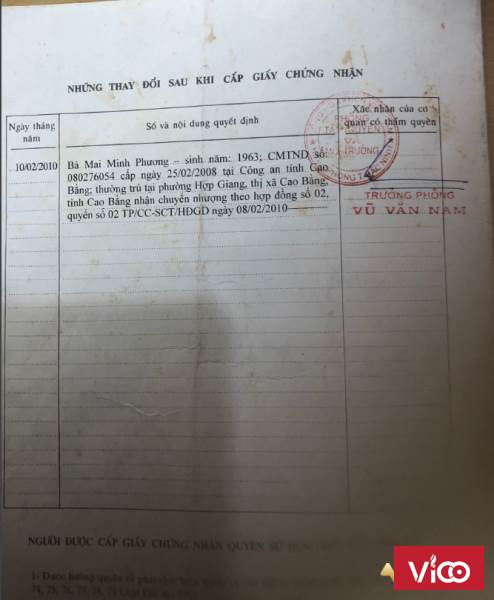 NHỮNG THAY ĐỔI SAU KHI CẤP GIẤY CHỨNG NHẬN
Ngày tháng năm
Số và nội dung quyết định
Xác nhận của cơ quan có thẩm quyền
10/02/2010
Bà Mai Minh Phương – sinh năm: 1963; CMTND số:
080276054 cấp ngày 25/02/2008 tại Công an tỉnh Cao
Bằng; thường trú tại phường Hợp Giang, thị xã Cao Bằng,
tỉnh Cao Bằng nhận chuyển nhượng theo hợp đồng số 02,
quyển số 02 TP/CC-SCT/HĐGD ngày 08/02/2010
PHÒNG
TÀI NGUYÊN
VÀ
MÔI TRƯỜNG
TRƯỞNG PHÒNG
VŨ VĂN NAM
NGƯỜI ĐƯỢC CẤP GIẤY CHỨNG NHẬN QUYỀN SỬ DỤNG
1- Được hưởng quyền
VICO